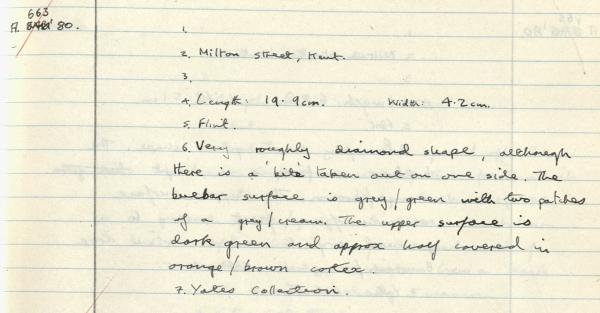 663
A. '80.
1.
2. Milton Street, Kent.
3.
4. Length: 19.9cm. Width: 4.2cm.
5. Flint.
6. Very roughly diamond shape, although
there is a 'bite' taken out on one side. The
bulbar surface is grey/green with two patches
of a grey/cream. The upper surface is
dark green and approx half covered in
orange/brown cortex.
7. Yates Collection.